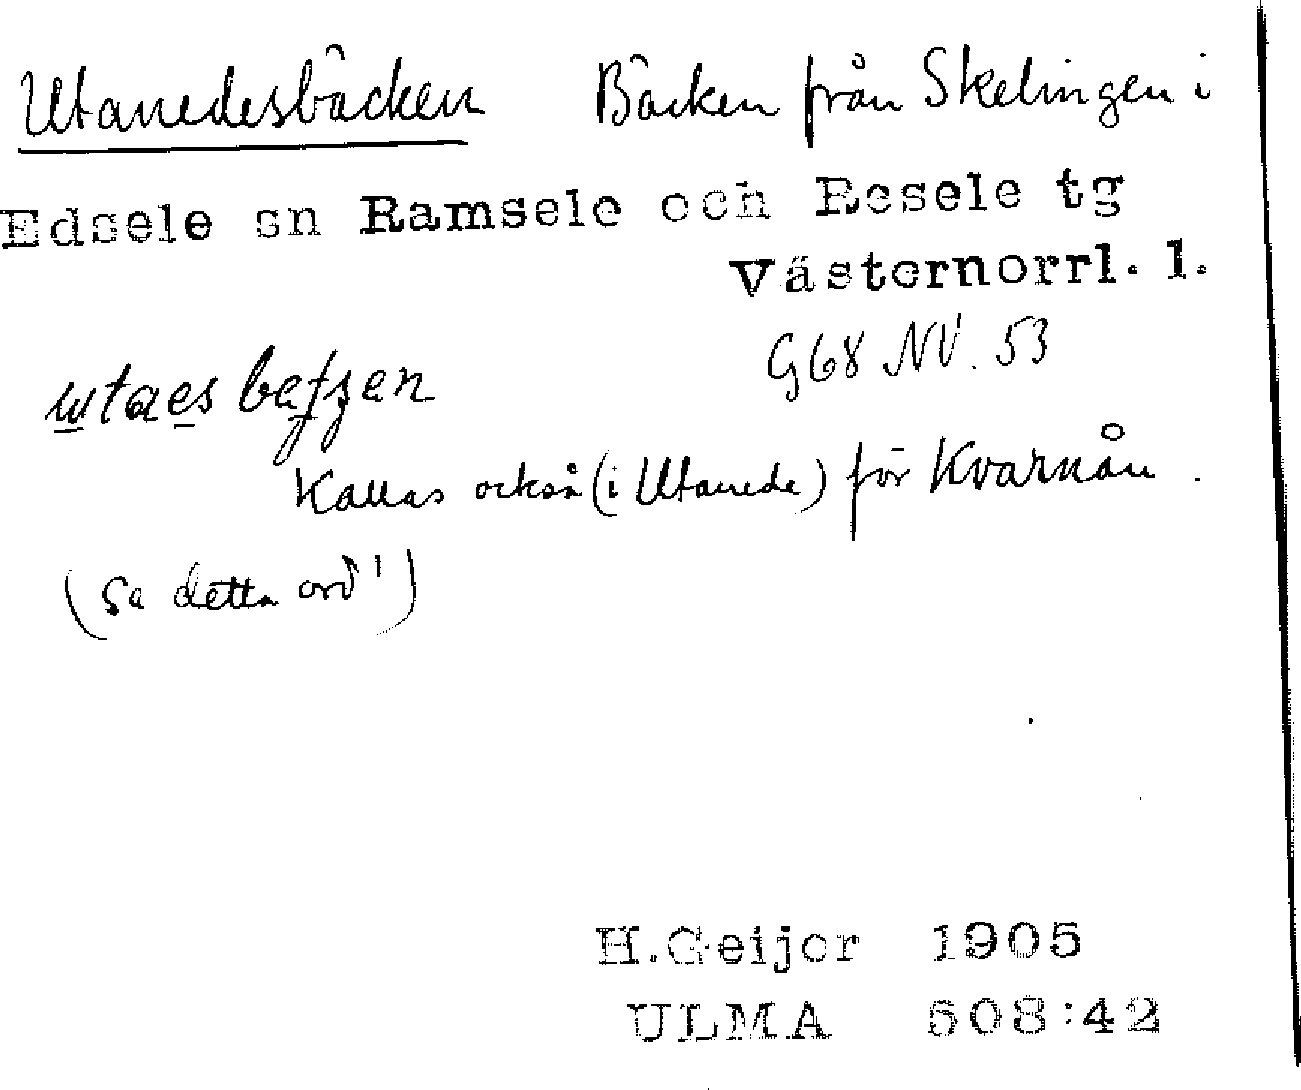 Utanedesbäcken Bäcken från Skelingen i
Edsele sn Ramsele och Resele tg
Västernorrl. l.
G68 NV. 53
Kallas också (i Utanede) för Kvarnån.
(Se detta ord!)
H.Geijer 1905
ULMA 608:42